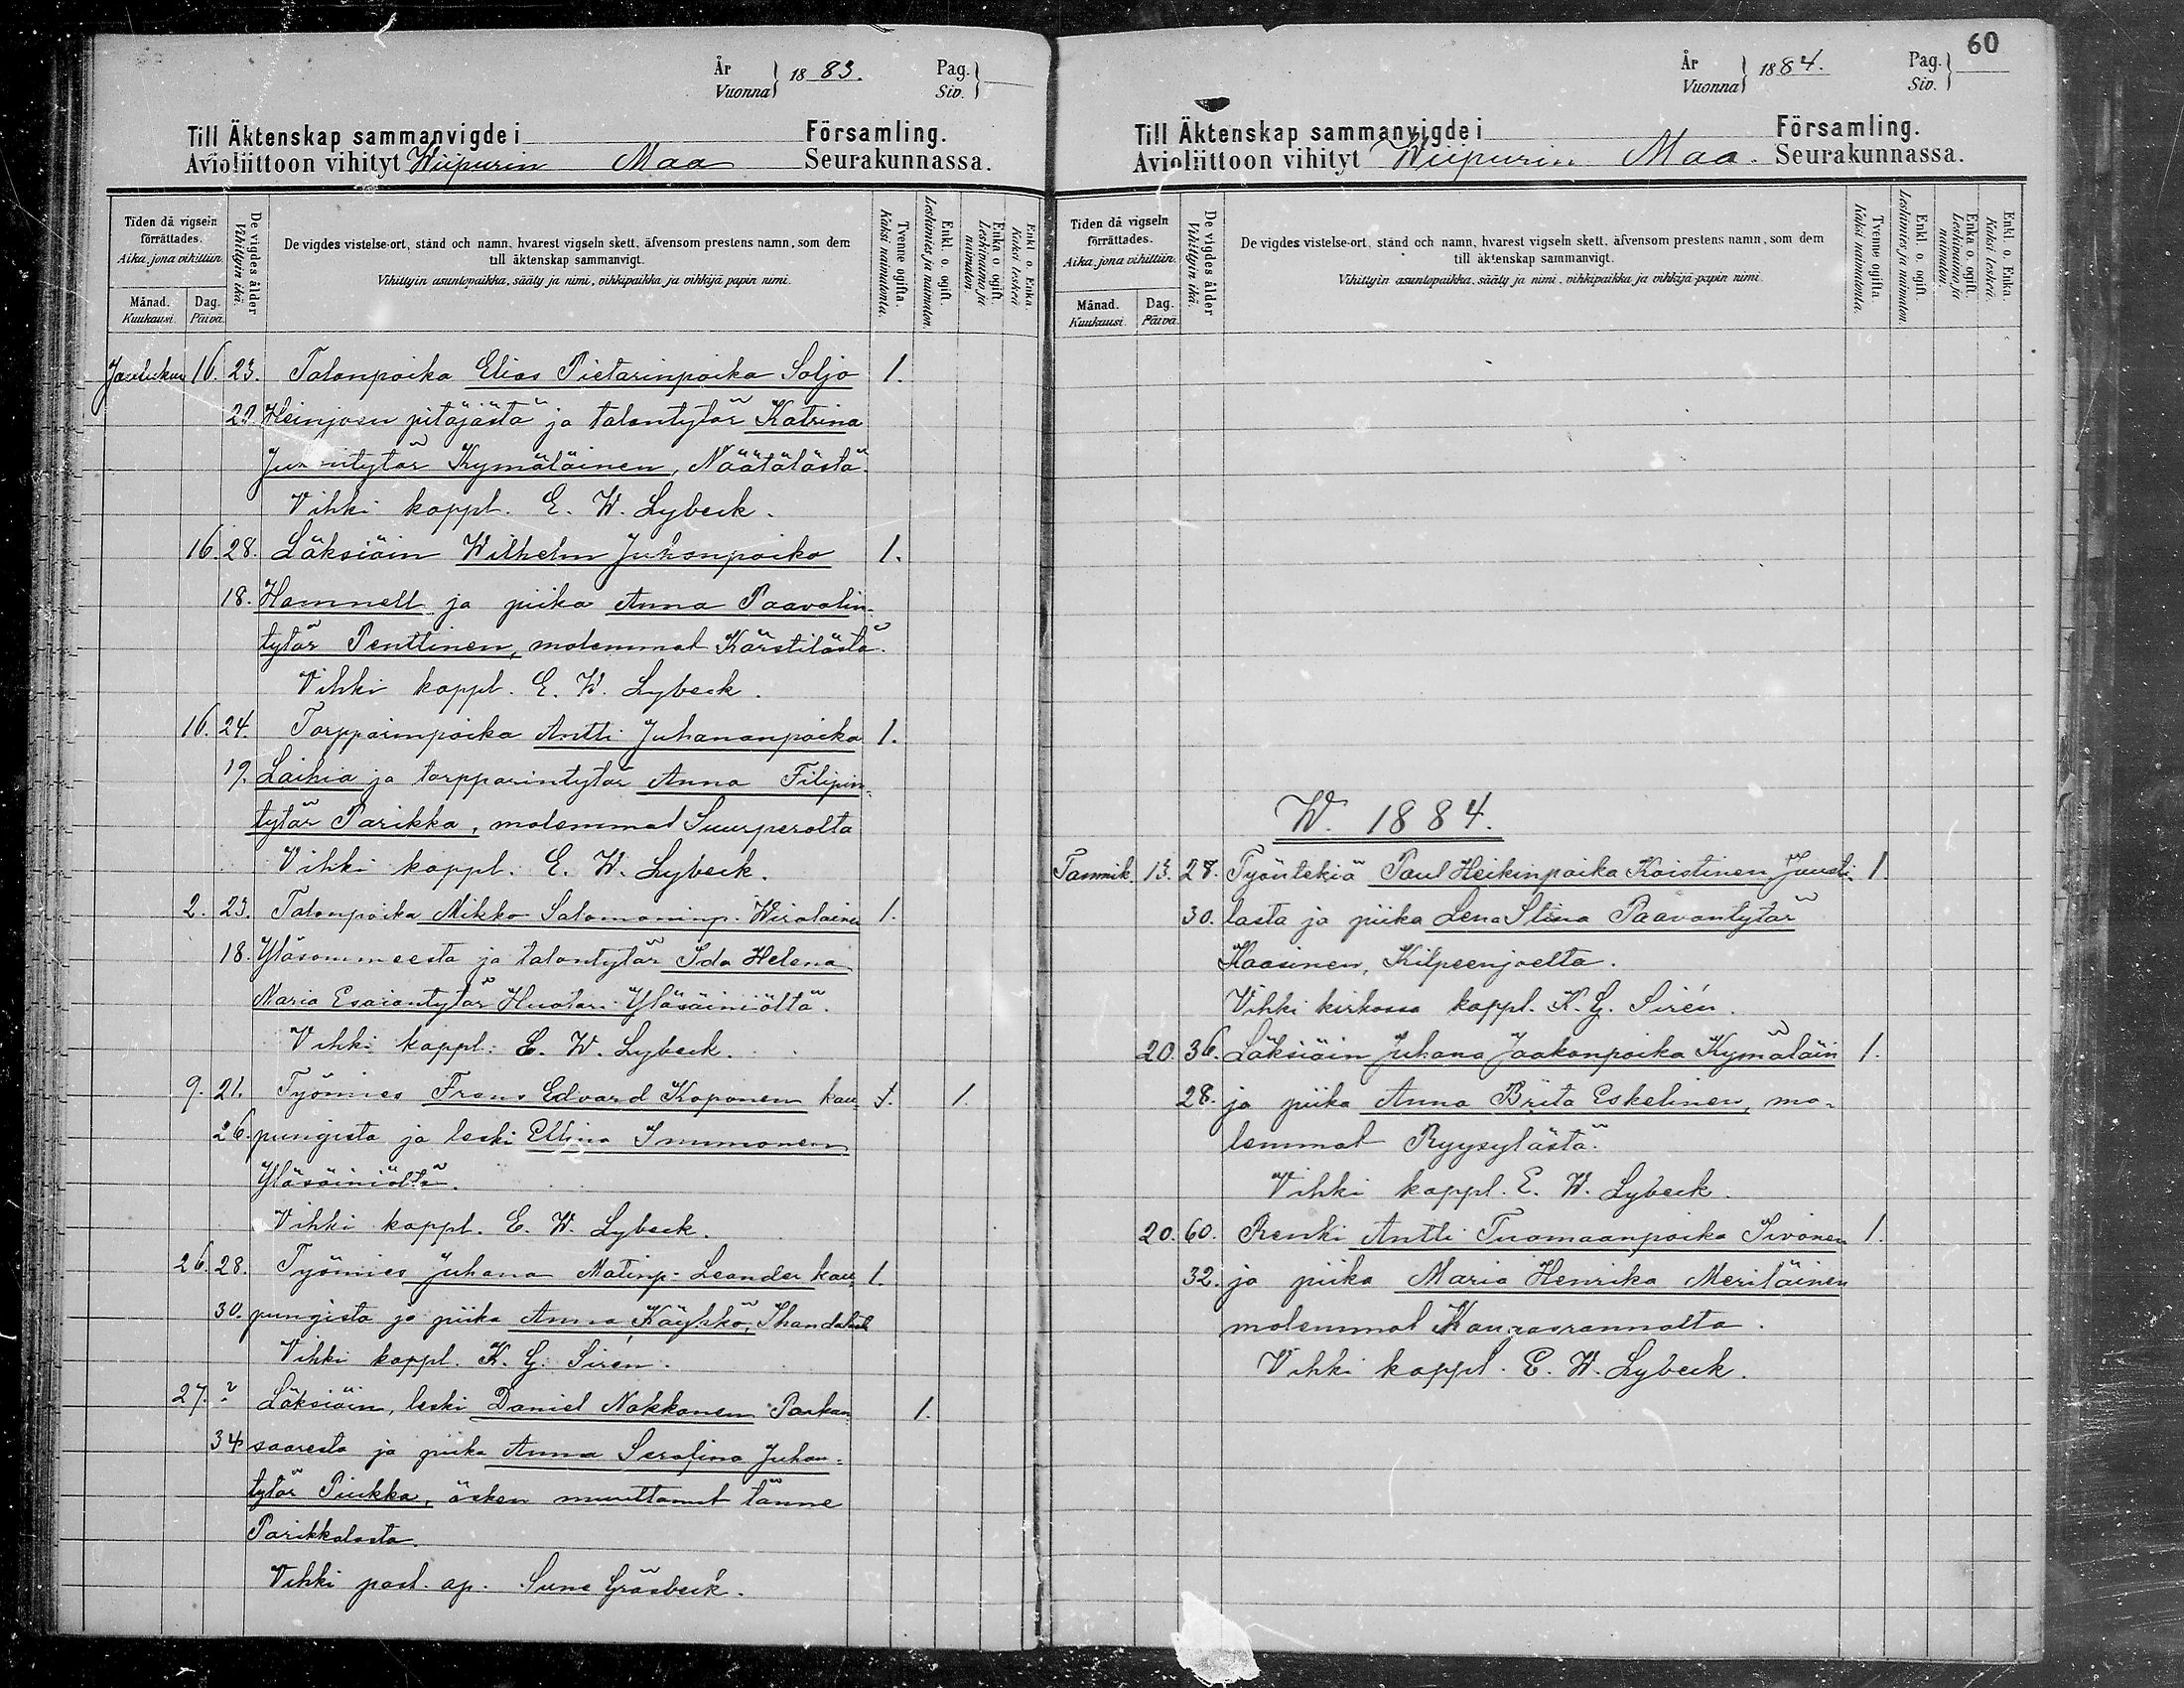 År
Vuonna } 1883.
Pag.
Siv. }
Till Äktenskap sammanvigde i Församling.
Avioliittoon vihityt Wiipurin Maa Seurakunnassa.
Tiden då vigseln förrättades.
Aika, jona vihittiin.
Månad.
Kuukausi.
Dag.
Päivä.
De vigdes ålder
Vihittyin ikä.
De vigdes vistelse-ort, stånd och namn, hvarest vigseln skett, äfvensom prestens namn, som dem
till äktenskap sammanvigt.
Vihittyin asuntopaikka, sääty ja nimi, vihkipaikka ja vihkijä papin nimi.
Tvenne ogifta.
Kaksi naimatonta.
Enkl. o. ogift.
Leskimies ja naimaton.
Enka o. ogift.
Leskivaimo ja naimaton.
Enkl. o. Enka.
Kaksi leskeä.
Joulukuu 16. 23. Talonpoika Elias Pietarinpoika Soljo 1.
Heinjoen pitäjästä ja talontytär Katrina
Kymäläinen, Näätälästä
Vihki kappl. E. W. Lybeck.
16. 28. Läksiäin Wilhelm Juhonpoika 1.
18. Hamnell ja piika Anna Paavalin-
tytär Penttinen, molemmat Kärstilästä.
Vihki kappl. E. W. Lybeck.
16. 24. Torpparinpoika Antti Juhananpoika 1.
19. Laihia ja torpparintytär Anna Filipin-
tytär Parikka, molemmat Suurperolta
Vihki kappl. E. W. Lybeck.
2. 23. Talonpoika Mikko Salomoninp. Wirolainen 1.
18. Yläsommeesta ja talontytär Ida Helena
Maria Esaiantytär Huotari Yläsäiniöltä.
Vihki kappl. E. W. Lybeck.
9. 21. Työmies Frans Edvard Koponen kau- 1.
26. pungista ja leski Elliina Immonen
Yläsäiniöltä.
Vihki kappl. E. W. Lybeck.
26. 28. Työmies Juhana Matinp. Leander kau- 1.
30. pungista ja piika Anna Käyhkö,
Vihki kappl. K. G. Sirén.
27. ? Läksiäin, leski Daniel Nokkonen Parkan 1.
34 saaresta ja piika Anna Serafina Juhan-
tytär Piukka, äsken muuttanut tänne
Parikkalasta.
Vihki past. ap. Sune Gräsbeck.
60
År
Vuonna } 1884.
Pag.
Siv. }
Till Äktenskap sammanvigde i Församling.
Avioliittoon vihityt Wiipurin Maa. Seurakunnassa.
Tiden då vigseln förrättades.
Aika, jona vihittiin.
Månad.
Kuukausi.
Dag.
Päivä.
De vigdes ålder
Vihittyin ikä.
De vigdes vistelse-ort, stånd och namn, hvarest vigseln skett, äfvensom prestens namn, som dem
till äktenskap sammanvigt.
Vihittyin asuntopaikka, sääty ja nimi, vihkipaikka ja vihkijä papin nimi.
Tvenne ogifta.
Kaksi naimatonta.
Enkl. o. ogift.
Leskimies ja naimaton.
Enka o. ogift.
Leskivaimo ja naimaton.
Enkl. o. Enka.
Kaksi leskeä.
W. 1884.
Tammik. 13. 28. Työntekiä Paul Heikinpoika Koistinen Juusti- 1
30. lasta ja piika Lena Stina Paavontytär
Kaasinen, Kilpeenjoelta.
Vihki kirkossa kappl. K. G. Sirén.
20. 36. Läksiäin Juhana Jaakonpoika Kymäläin 1.
28. ja piika Anna Brita Eskelinen, mo-
lemmat Ryysylästä.
Vihki kappl. E. W. Lybeck.
20. 60. Renki Antti Tuomaanpoika Sivonen 1.
32. ja piika Maria Henrika Meriläinen
molemmat Kangasrannalta.
Vihki kappl. E. W. Lybeck.